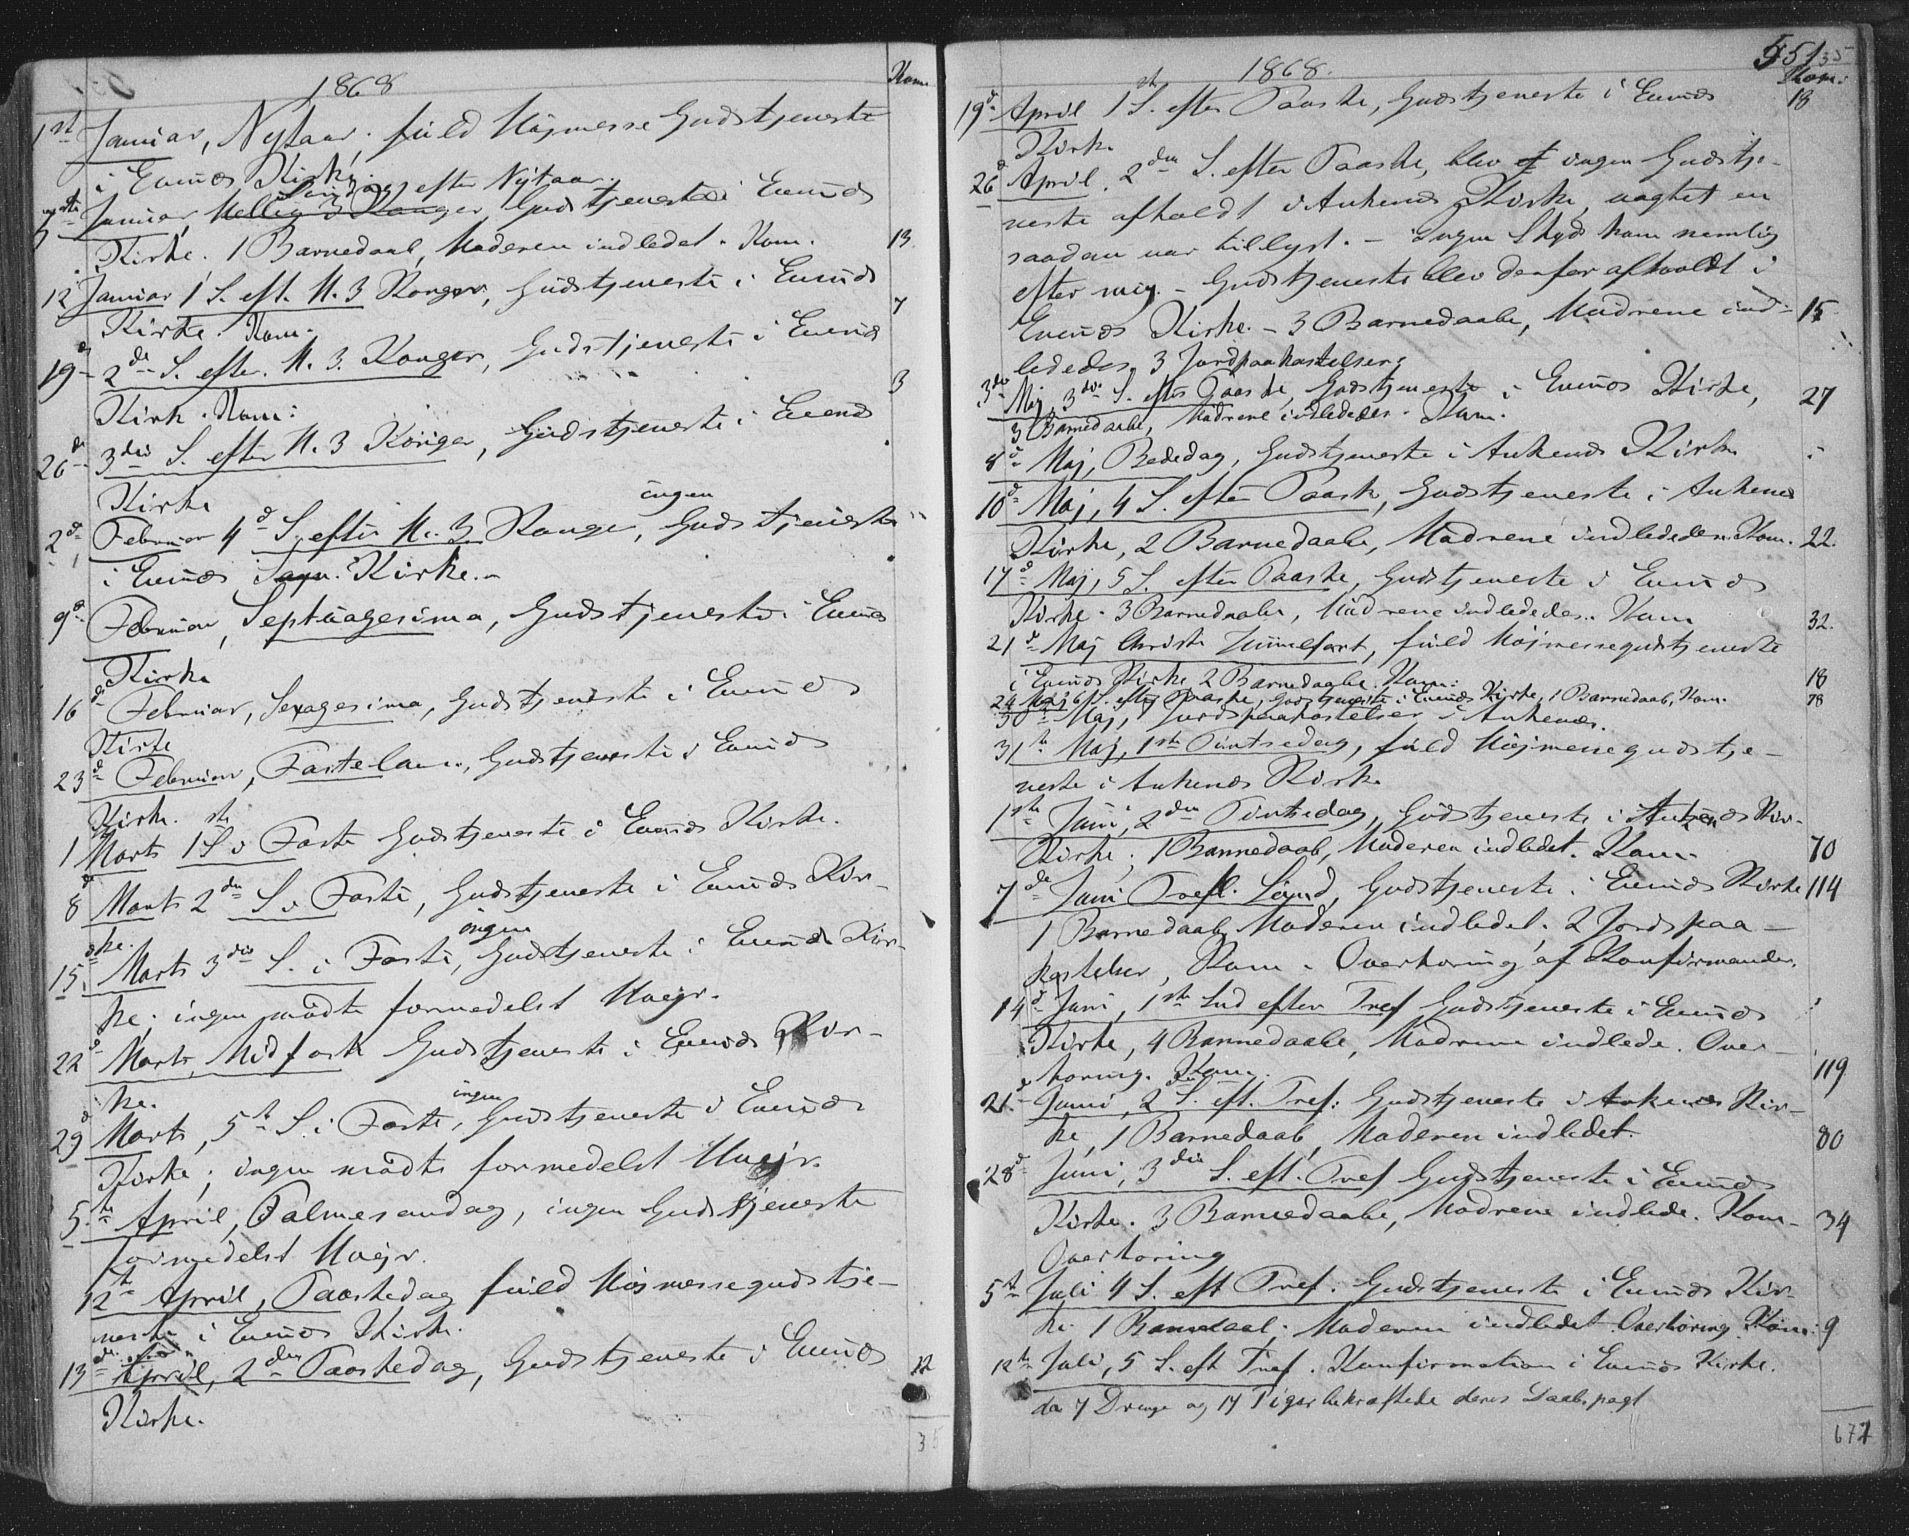 1868
Kom.
1st Januar, Nytaar, fuld Højmesse Gudstjeneste
i Evenæs Kirke.
Søndag efter Nytaar.
5te Januar, Hellig 3 Konger Gudstjeneste i Evenæs
Kirke. 1 Barnedaab, Moderen indledet. Kom. 13.
12 Januar 1 S. eft. H. 3 Konger, Gudstjeneste i Evenæs
Kirke. Kom. 7
19de 2de S. efter H. 3. Konger, Gudstjeneste i Evenæs
Kirk. Kom: 3
26de 3die S. efter H. 3 Konger, Gudstjeneste i Evenæs
Kirke
ingen
2d Februar 4d S. efter H. 3 Konger, Gudstjeneste
i Evenæs Kirke.
9d Februar, Septuagesima, Gudstjeneste i Evenæs
Kirke
16d Februar, Sexagesima, Gudstjeneste i Evenæs
Kirke
23d Februar, Fastelavn, Gudstjeneste i Evenæs
Kirke.
1 Marts 1ste S i Faste Gudstjeneste i Evenæs Kirke.
8de Marts 2den S i Faste, Gudstjeneste i Evenæs Kir-
ke.
ingen
15d Marts 3die S. i Faste, Gudstjeneste i Evenæs Kir-
ke; ingen mødte formedelst Uvejr.
22d Marts, Midfaste Gudstjeneste i Evenæs Kir-
ke.
ingen
29d Marts, 5te S. i Faste, Gudstjeneste i Evenæs
Kirke; ingen mødte formedelst Uvejr.
5te April, Palmesøndag, ingen Gudstjeneste
formedelst Uvejr.
12te April, Paaskedag fuld Højmessegudstje-
neste i Evenæs Kirke.
13de April, 2den Paaskedag, Gudstjeneste i Evenæs 12
Kirke.
35
551
35
1868.
Kom:
19d April 1st S. efter Paaske, Gudstjeneste i Evenæs 13
Kirke
26d April. 2den S. efter Paaske, blev ingen Gudstje-
neste afholdt i Ankenæs Kirke, uagtet en
saadan var tillyst. – Ingen Skyds kom nemlig
efter mig. – Gudstjeneste blev derfor afholdt i
Evenæs Kirke. – 3 Barnedaabe, Mødrene ind- 15
lededes, 3 Jordpaakastelser
3die Maj, 3die S. efter Paaske, Gudstjeneste i Evenæs Kirke, 27
3 Barnedaabe, Mødrene indlededes. Kom.
8d Maj, Bededag, Gudstjeneste i Ankenæs Kirke
10d Maj, 4 S. efter Paaske, Gudstjeneste i Ankenæs
Kirke, 2 Barnedaabe, Mødrene indlededes. Kom. 22.
17d Maj, 5 S. efter Paaske, Gudstjeneste i Evenæs
Kirke. 3 Barnedaabe, Mødrene indlededes. Kom 32.
21d Maj Christi Himmelfart, fuld Højmessegudstjeneste
i Evenæs Kirke 2 Barnedaabe. Kom: 18
24 Maj 6 S. efter Paaske, Gudstjeneste i Evenæs Kirke, 1 Barnedaab, Kom. 78
30te Maj, Jordspaakastelser i Ankenæs.
31te Maj, 1ste Pintsedag, fuld Højmessegudstje-
neste i Ankenæs Kirke
1ste Juni, 2den Pintsedag, Gudstjeneste i Ankenæs Kir-
Kirke; 1 Barnedaab, Moderen indledet. Kom. 70
7de Juni Trefl. Sønd, Gudstjeneste i Evenæs Kirke 114
1 Barnedaab Moderen indledet. 2 Jordspaa-
kastelser, Kom. Overhøring af Konfirmander.
14d Juni, 1ste Sød efter Tref Gudstjeneste i Evenæs
Kirke, 4 Barnedaabe, Mødrene indlede. Over-
høring. Kom. 119
21d Juni, 2den S. eft. Tref: Gudstjeneste i Ankenæs Kir-
ke, 1 Barnedaab, Moderen indledet. 80
28d Juni, 3die S. eft. Tref Gudstjeneste i Evenæs
Kirke. 3 Barnedaabe, Mødrene indlede. Kom- 34
Overhøring
5te Juli 4 S. eft Tref. Gudstjeneste i Evenæs Kir-
ke 1 Barnedaab; Moderen indledet Overhøring Kom: 9
12te Juli, 5 S. eft Tref. Konfirmation i Evenæs Kirke.
da 7 Drenge og 17 Piger bekræftede deres Daabspagt
677